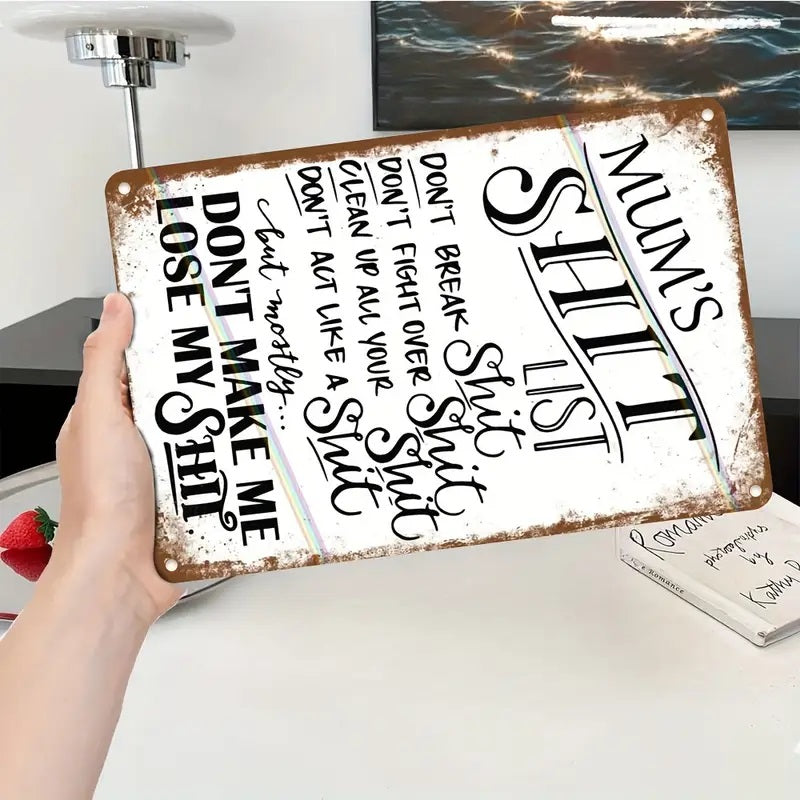 MUM'S
SHIT
LIST
DON'T BREAK Shit
DON'T FIGHT OVER Shit
CLEAN UP ALL YOUR Shit
DON'T ACT LIKE A Shit
but mostly...
DON'T MAKE ME
LOSE MY SHIT
Romance
by